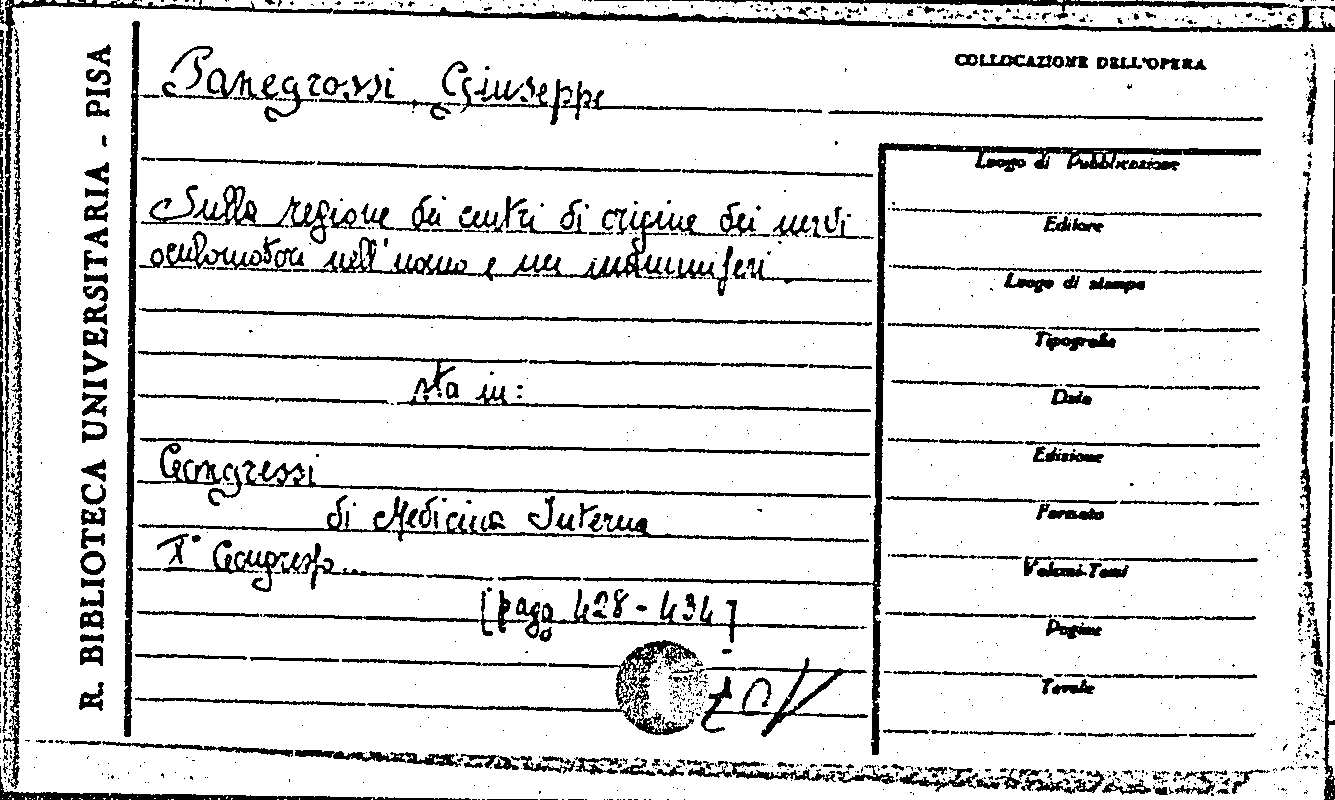 R. BIBLIOTECA UNIVERSITARIA - PISA
COLLOCAZIONE DELL'OPERA
Panegrossi, Giuseppe
Sulla regione dei centri di origine dei nervi
oculomotori nell'uomo e nei mammiferi.
sta in:
Congressi
di Medicina Interna
X° Congresso...
[pagg 428-434]
Luogo di Pubblicazione
Editore
Luogo di stampa
Tipografia
Data
Edizione
Formato
Volumi-Tomi
Pagine
Tavole